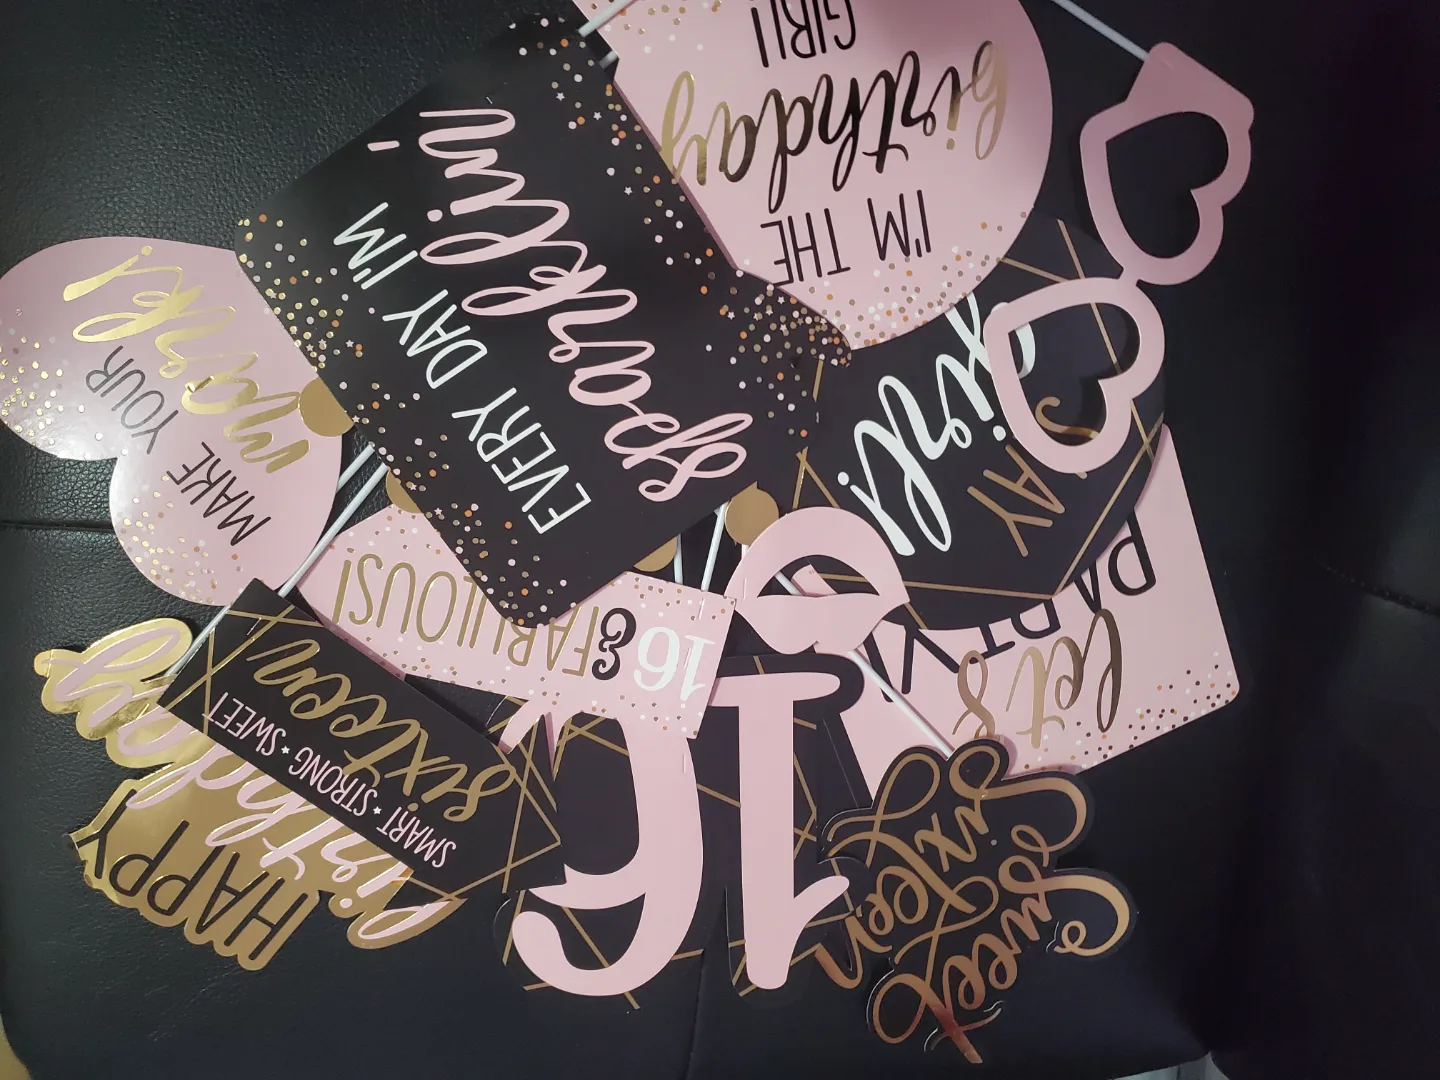 I'M THE
birthday
GIRL!
EVERY DAY I'M
sparklin'
MAKE YOUR
mark!
STAY
girli
let's
PARTY
16 & FABULOUS!
SMART ★ STRONG ★ SWEET
sixteen
HAPPY
birthday
16
Sweet
Sixteen